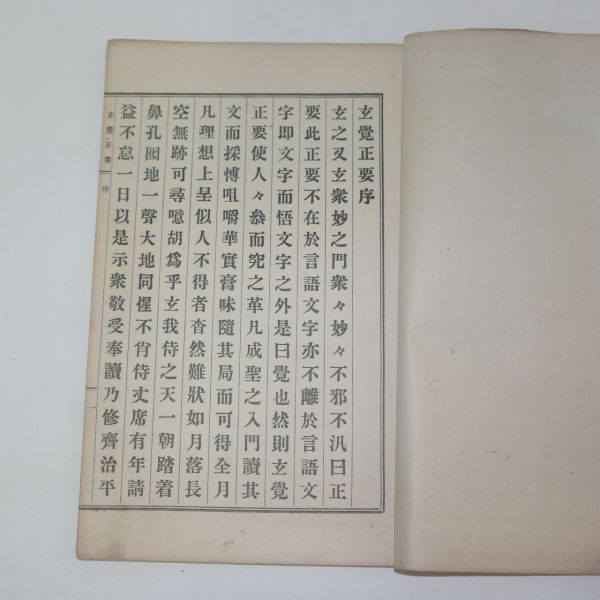 玄覺正要序
玄之又玄衆妙之門衆々妙々不邪不汎曰正
要此正要不在於言語文字亦不離於言語文
字即文字而悟文字之外是曰覺也然則玄覺
正要使人々叅而究之革凡成聖之入門讀其
文而採博咀嚼華實膏味隨其局而可得全月
凡理想上呈似人不得者杳然難狀如月落長
空無跡可尋噫胡爲乎玄我侍之天一朝踏着
鼻孔囮地一聲大地同惺不肯侍丈席有年請
益不怠一日以是示衆敬受奉讀乃修齊治平
玄覺正要 序